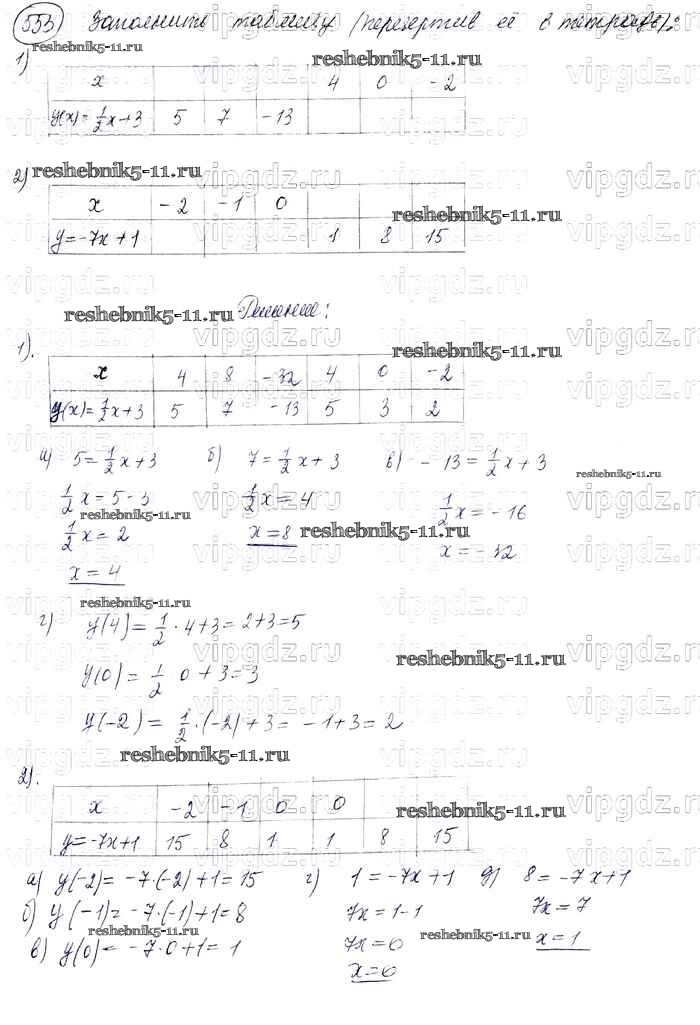 553 Заполнить таблицу (перечертив её в тетрадь):
reshebnik5-11.ru reshebnik5-11.ru vipgdz.ru
1)
x 4 0 -2
y(x)=1/2x+3 5 7 -13
vipgdz.ru vipgdz.ru vipgdz.ru
2) reshebnik5-11.ru vipgdz.ru vipgdz.ru
x -2 -1 0 reshebnik5-11.ru
y=-7x+1 1 8 15
vipgdz.ru vipgdz.ru vipgdz.ru
vipgdz.ru vipgdz.ru vipgdz.ru
reshebnik5-11.ru Решение:
vipgdz.ru vipgdz.ru vipgdz.ru
1). reshebnik5-11.ru
x 4 8 -32 4 0 -2
y(x)=1/2x+3 5 7 -13 5 3 2
а) 5=1/2x+3 б) 7=1/2x+3 в) -13=1/2x+3
reshebnik5-11.ru
1/2x=5-3 1/2x=4 1/2x=-16
reshebnik5-11.ru
1/2x=2 x=8 reshebnik5-11.ru x=-32
x=4
reshebnik5-11.ru
г) y(4)=1/2·4+3=2+3=5
reshebnik5-11.ru
y(0)=1/2 0+3=3
y(-2)=1/2·(-2)+3=-1+3=2
reshebnik5-11.ru
2).
x -2 -1 0 0 reshebnik5-11.ru
y=-7x+1 15 8 1 1 8 15
а) y(-2)=-7·(-2)+1=15 г) 1=-7x+1 д) 8=-7x+1
б) y(-1)=-7·(-1)+1=8 7x=1-1 7x=7
reshebnik5-11.ru reshebnik5-11.ru
в) y(0)=-7·0+1=1 7x=0 x=1
x=0